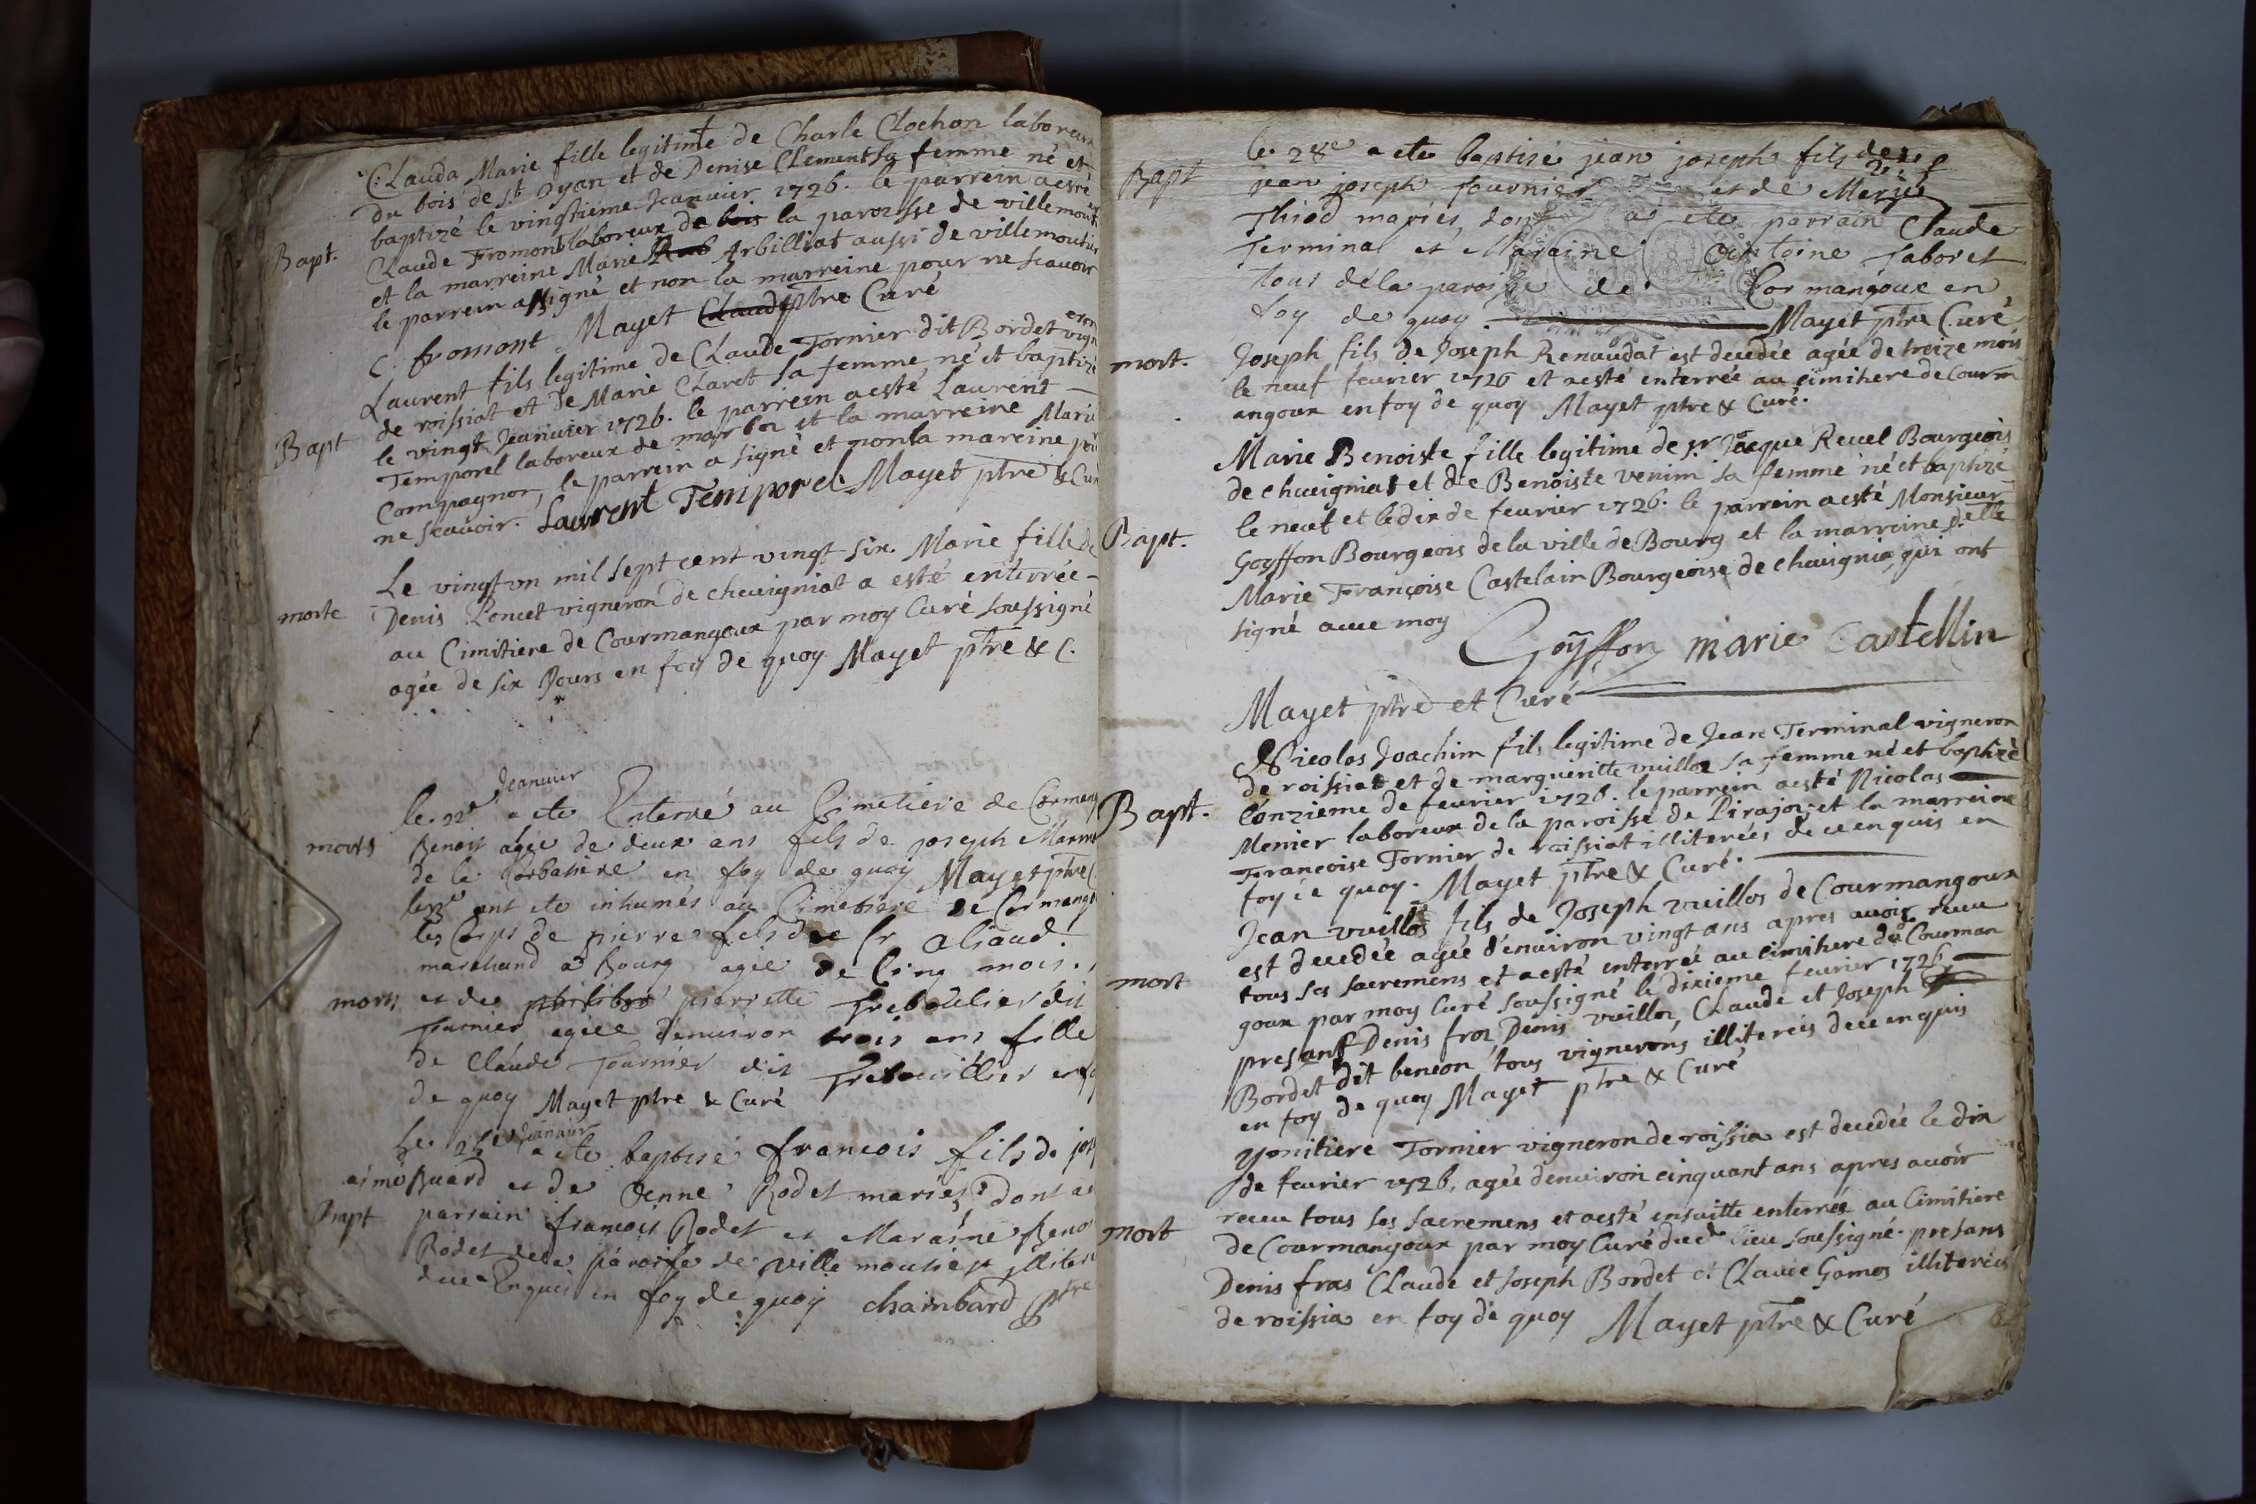 Clauda Marie fille legitime de Charle Clochon laboreur
du bois de st Oyan et de Denise Clement sa femme né et
baptizé le vingtiéme Jeanvier 1726. le parrein a esté
Bapt. Claude Fromont laboreux de la paroisse de villemoutier
et la marreine Marie Arbilliat aussi de villemoutier
le parrein a signé et non la marreine pour ne scavoir
C. fromont Mayet ptre Curé
Laurent fils legitime de Claude Tornier dit Bordet vigneron
de roissiat et de Marie Claret sa femme né et baptizé
Bapt le vingt Jeanvier 1726. le parrein a esté Laurent
Temporel laboreux de marbos et la marreine Marie
Compagnon, le parrein a signé et non la mareine pour
ne scavoir. Laurent Temporel Mayet ptre & Curé
Le vingt un mil sept cent vingt six. Marie fille de
morte Denis Poncet vigneron de cheuigniat a esté enterrée
au Cimitiere de Courmangoux par moy Curé soussigné
agée de six Jours en foy de quoy Mayet ptre & C.
Jeanvier
le 22e a ete Enterré au Cimetiére de Cormang
morts Benoit agée de deux ans fils de joseph
de le Corbatiere en foy de quoy Mayet ptre C.
ont ete inhumés au Cimetiére de Cormang
les Corps de pierre fils de sr aliaud
marchand a Bourg agée de Cinq mois.
morts et de pierrette frebouliér dit
furnier agée denuiron trois ans fille
de Claude fournier dit frebouillier en foy
de quoy Mayet ptre & Curé
Jeanvier
Le a ete baptisé francois fils de
aimé Buard et de Oenne Rodet mariés dont a
Bapt parrain francois Rodet et Maraine
Rodet de la paroisse de ville moutier illiteré
Enquis en foy de quoy chambard ptre
le 28e a ete baptizé jean joseph fils de
Bapt jean joseph fournier et de Merie
Thiod mariés, dont a ete parrain Claude
Terminal et Maraine antoine Taboret
tous déla paroisse de Cormangoux en
foy de quoy. Mayet ptre Curé
mort. Joseph fils de Joseph Renaudat est decedée agée de treize mois
le neuf feurier 1726 et a esté enterrée au cimitiere de Courm
angoux en foy de quoy Mayet ptre & Curé.
Marie Benoiste fille legitime de sr Jacque Reuel Bourgeois
de cheuigniat et de Benoiste venim sa femme né et baptizé
Bapt. le neuf et le dix de feurier 1726. le parrein a esté Monsieur
Goyffon Bourgeois de la ville de Bourg et la marreine delle
Marie Françoise Castelain Bourgeoise de cheuignia qui ont
signé auec moy
Goÿffon marie Castellin
Mayet ptre et Curé
Nicolas Joachim fils legitime de Jean Terminal vigneron
de roissiat et de margueritte vuillos sa femme né et baptizé
Bapt. l'onzieme de feurier 1726. le parrein a esté Nicolas
Menier laboreux de la paroisse de Pirajoz et la marreine
Francoise Tornier de roissiat illiterées de ce enquis en
foy de quoy. Mayet ptre & Curé.
Jean vuillos fils de Joseph vuillos de Courmangoux
est decedée agée d'enuiron vingt ans apres auoir receu
mort tous ses sacremens et a esté enterré au cimitiere de Courman
goux par moy Curé soussigné le dixieme feurier 1726
presans Denis froz, Denis vuillos, Claude et Joseph
Bordet dit bencon, tous vignerons illiterés de ce enquis
en foy de quoy Mayet ptre & Curé
Tornier vigneron de roissia est decedée le dix
de feurier 1726, agée denuiron cinquant ans apres auoir
mort receu tous ses sacremens et a esté ensuitte enterrée au Cimitiere
de Courmangoux par moy Curé dud. lieu soussigné. presans
Denis fras Claude et Joseph Bordet et Claude Gomos illiterées
de roissia en foy de quoy Mayet ptre & Curé